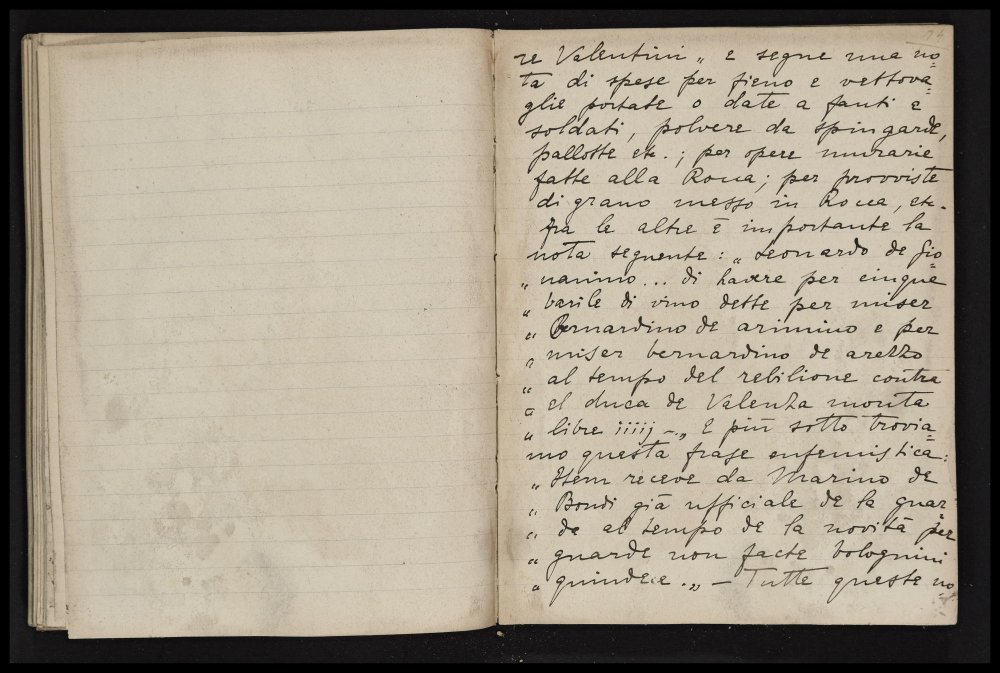 re Valentini „ e segue una no=
ta di spese per fieno e vettova=
glie portate o date a fanti e
soldati, polvere da spingarde,
pallotte etc.; per opere murarie
fatte alla Rocca; per provviste
di grano messo in Rocca, etc.
fra le altre è importante la
nota seguente: „ Leonardo de Gio=
„ uanino... di havere per cinque
„ barile di vino dette per miser
„ Bernardino de arimino e per
„ miser bernardino de arezzo
„ al tempo del rebilione contra
„ el duca de Valenza monta
„ libre iiiij –„ E più sotto trovia=
mo questa frase eufemistica:
„ Item receve da Marino de
„ Bondi già ufficiale de la guar=
„ de al tempo de la novità per
„ guarde non facte bolognini
„ quindece.„ – Tutte queste no=